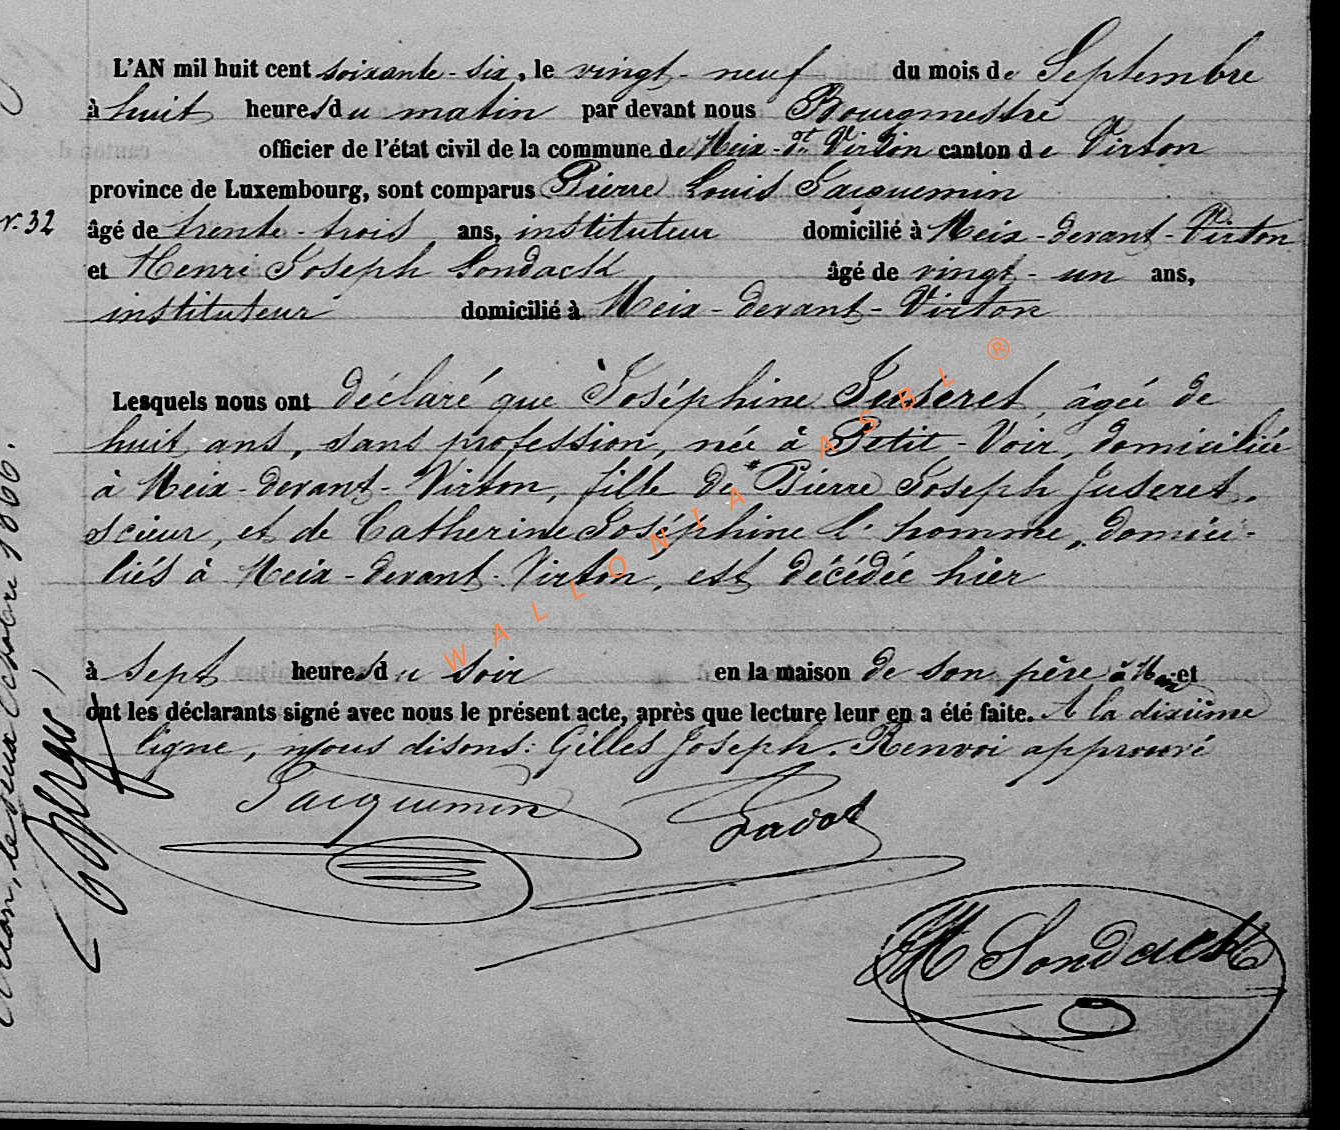 L'AN mil huit cent soixante-six, le vingt-neuf du mois de Septembre
à huit heures du matin par devant nous Bourgmestre
officier de l'état civil de la commune de Meix-dt Virton canton de Virton
province de Luxembourg, sont comparus Pierre Louis Jacquemin
N. 32
âgé de trente-trois ans, instituteur domicilié à Meix-devant-Virton
et Henri Joseph Sondack âgé de vingt-un ans,
instituteur domicilié à Meix-devant-Virton
Lesquels nous ont déclaré que Joséphine Juseret, âgée de
huit ans, sans profession, née à Petit-Voir, domiciliée
à Meix-devant-Virton, fille de * Pierre Joseph Juseret,
scieur, et de Catherine Joséphine l'homme, domici-
liés à Meix-devant-Virton, est décédée hier
à sept heures du soir en la maison de son père à et
ont les déclarants signé avec nous le présent acte, après que lecture leur en a été faite. A la dixième
ligne, nous disons: Gilles Joseph. Renvoi approuvé
Jacquemin
H Sondack
octobre 1866.
WALLONIA ASBL ®